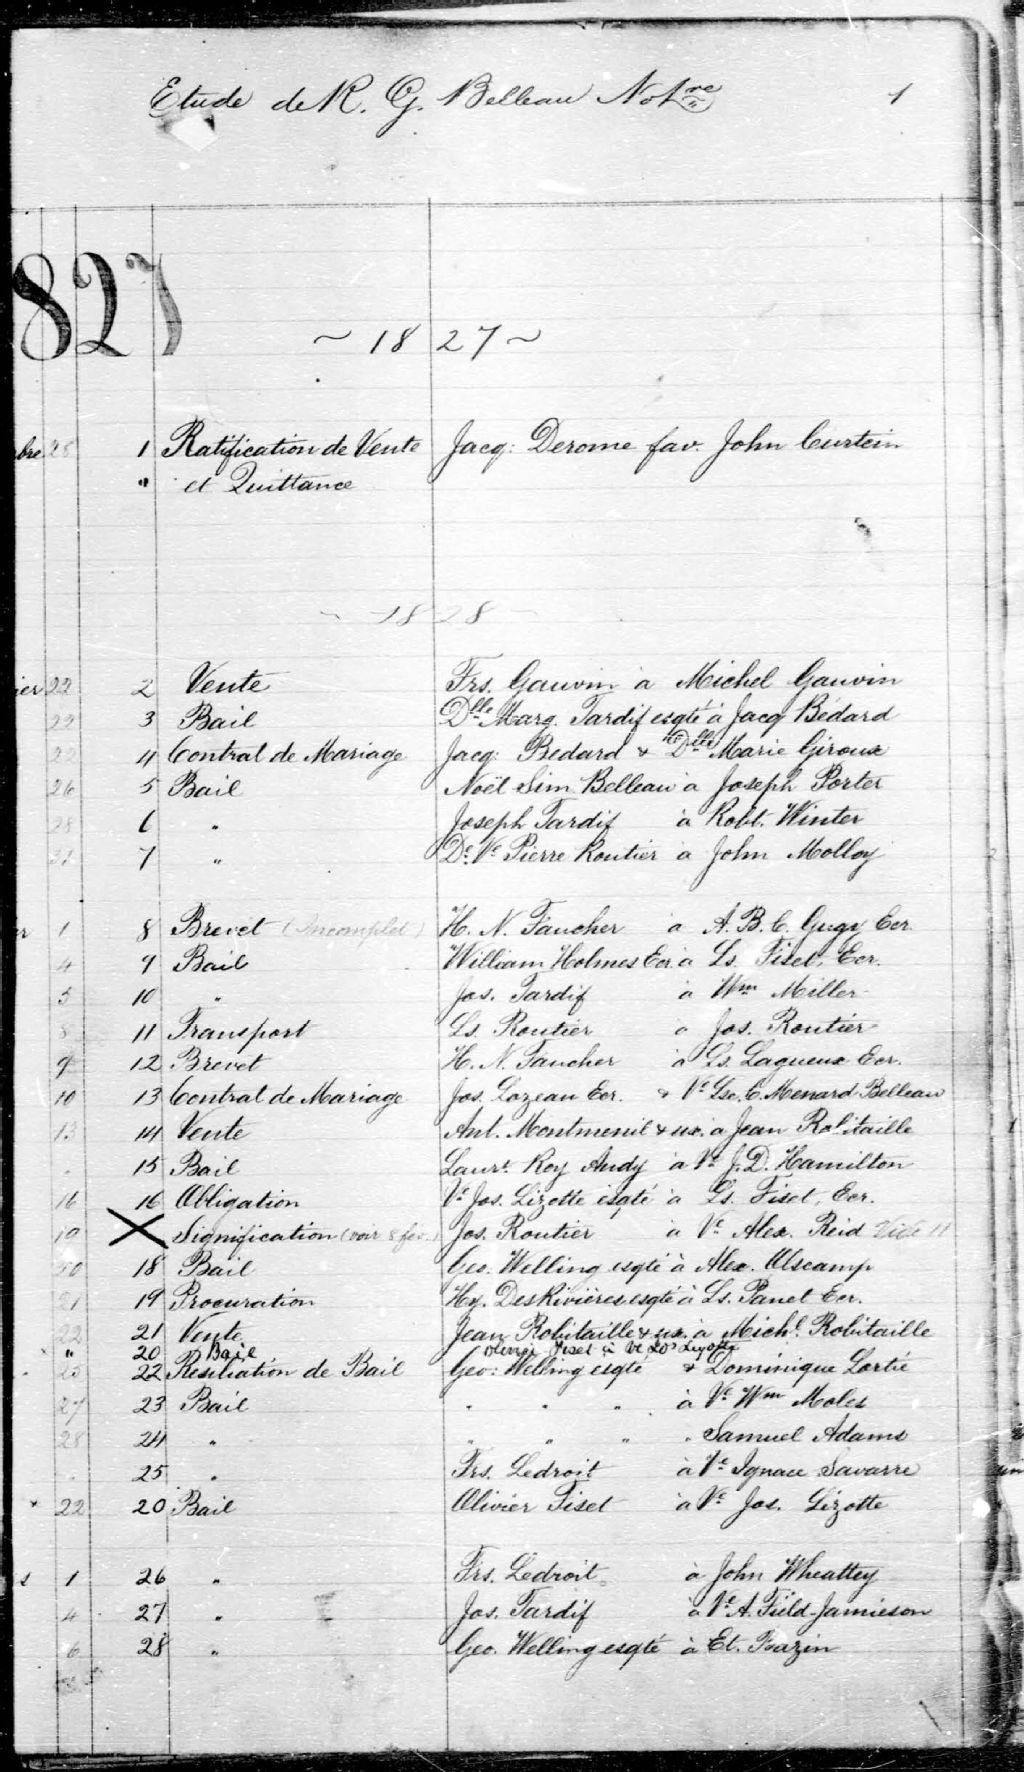 Etude de R. G. Belleau Not.re 1
827
~ 18 27 ~
bre 28 1 Ratification de Vente Jacq: Derome fav. John Curtein
" et Quittance
~ 18 28 ~
ier 22 2 Vente Frs. Gauvin à Michel Gauvin
22 3 Bail Dlle Marg. Tardif esqté à Jacq Bédard
4 Contrat de Mariage Jacq: Bedard & Dlle Marie Giroux
26 5 Bail Noël Sim Belleau à Joseph Porter
28 6 " Joseph Tardif à Robt. Winter
7 " De. Ve Pierre Routier à John Molloy
er 1 8 Brevet (Incomplet) H. N. Faucher à A. B. C. Gugy Ecr.
4 9 Bail William Holmes Ecr à Ls. Fiset, Ecr.
5 10 " Jos. Tardif à Wm Miller
8 11 Transport Ls Routier à Jos. Routier
9 12 Brevet H. N. Faucher à Ls. Lagueux Ecr.
10 13 Contrat de Mariage Jos. Lozeau Ecr. & Ve Lse. C. Menard Belleau
13 14 Vente Ant. Montmenil & ux. à Jean Robitaille
15 Bail Laurt. Roy Audy à Ve J. D. Hamilton
16 16 Obligation Ve Jos. Lizotte esqté à Ls. Fiset, Ecr.
19 Signification (voir 8 fév.) Jos. Routier à Ve Alex. Reid Vide 11
20 18 Bail Geo. Welling esqté à Alex. Alscamp
21 19 Procuration Hy. DesRivières esqté à Ls. Panet Ecr.
22 21 Vente Jean Robitaille & ux. à Michl. Robitaille
" 20 Bail Olivier Fiset à Ve Jos Lizotte
25 22 Resiliation de Bail Geo: Welling esqté & Dominique Lortie
27 23 Bail " " " à Ve Wm Moles
28 24 " " " " " Samuel Adams
25 " Frs. Ledroit à Ve Ignace Savarre
x 22 20 Bail Olivier Fiset à Ve Jos. Lizotte
s 1 26 " Frs. Ledroit à John Wheattey
4 27 " Jos. Tardif à Ve A. Field Jamieson
6 28 " Geo. Welling esqté à Et. Bazin